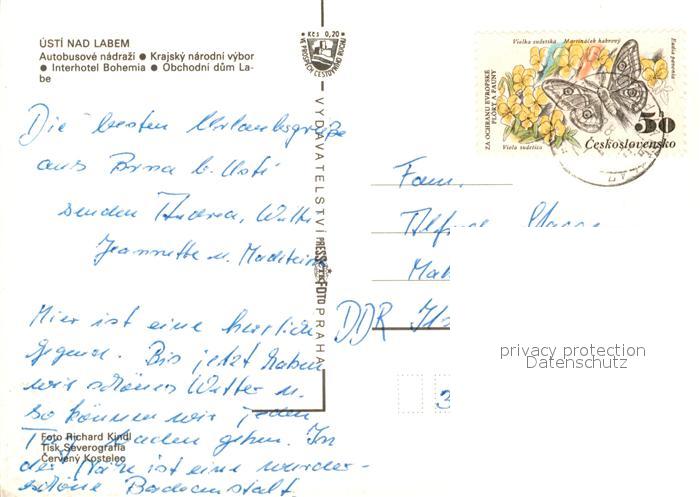 ÚSTÍ NAD LABEM
Autobusové nádraží ● Krajský národní výbor
● Interhotel Bohemia ● Obchodní dům La-
be
Kčs 0,20
VE PROSPĚCH CESTOVNÍHO RUCHU
VYDAVATELSTVÍ PRESSFOTO PRAHA
Viola sudetica Martináček habrový
Eudia pavonia
ZA OCHRANU EVROPSKÉ
FLÓRY A FAUNY
Viola sudetica
50
Československo
Die besten Urlaubsgrüße
aus Brna b. Usti
senden Andrea,
Jeannette u.
Hier ist eine herrliche
Gegend. Bis jetzt haben
wir schönes Wetter u.
so können wir jeden
Tag baden gehen. In
der Nähe ist eine wunder-
schöne Badeanstalt.
Fam.
Alfred
DDR
3
Foto Richard Kindl
Tisk Severografia
Červený Kostelec
privacy protection
Datenschutz